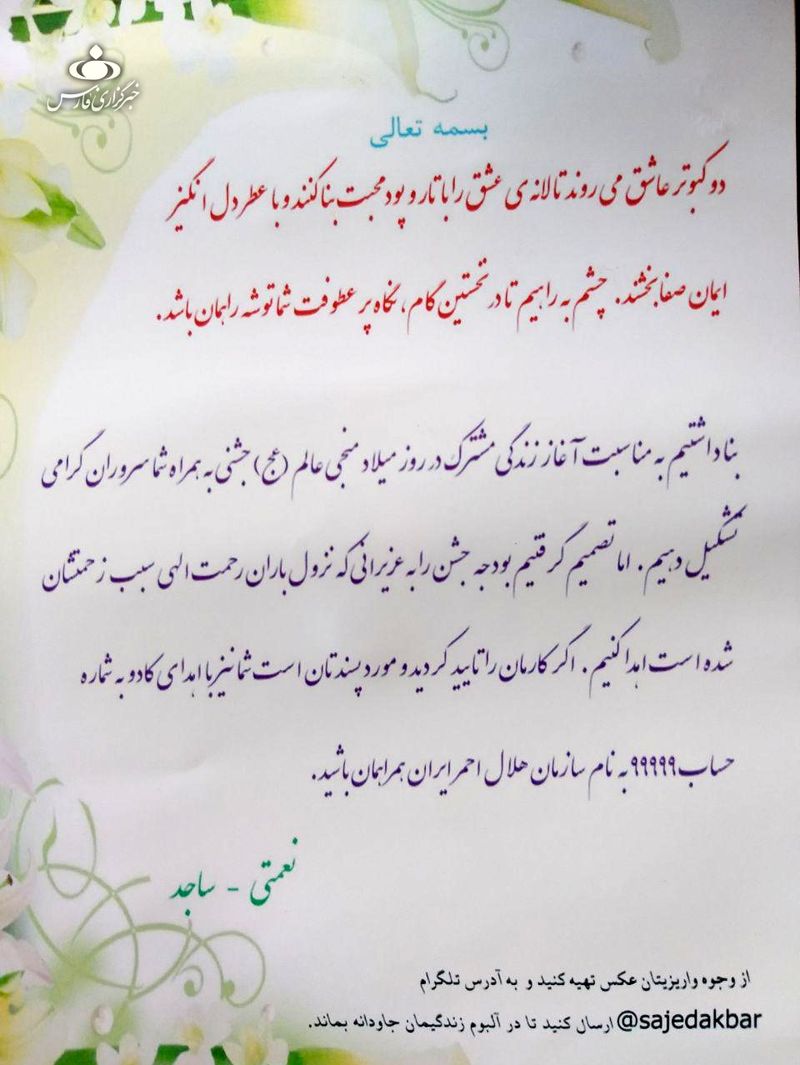 خبرگزاری فارس
بسمه تعالی
دو کبوتر عاشق می روند تا لانه ی عشق را با تار و پود محبت بنا کنند و با عطر دل انگیز
ایمان صفا بخشند. چشم به راهیم تا در نخستین گام، نگاه پر عطوفت شما توشه راهمان باشد.
بنا داشتیم به مناسبت آغاز زندگی مشترک در روز میلاد منجی عالم (عج) جشنی به همراه شما سروران گرامی
تشکیل دهیم. اما تصمیم گرفتیم بودجه جشن را به عزیزانی که نزول باران رحمت الهی سبب زحمتشان
شده است اهدا کنیم. اگر کارمان را تایید کردید و مورد پسندتان است شما نیز با اهدای کادو به شماره
حساب ۹۹۹۹۹ به نام سازمان هلال احمر ایران همراهمان باشید.
نعمتی - ساجد
از وجوه واریزیتان عکس تهیه کنید و به آدرس تلگرام
@sajedakbar ارسال کنید تا در آلبوم زندگیمان جاودانه بماند.